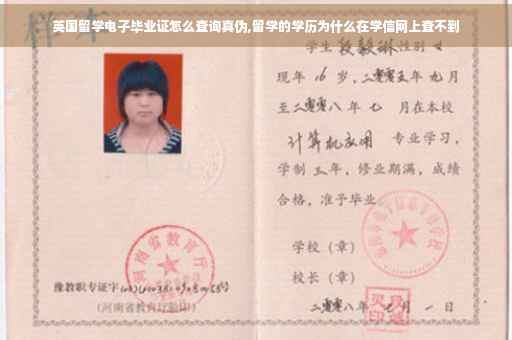 英国留学电子毕业证怎么查询真伪,留学的学历为什么在学信网上查不到
样本
学生 段毅琳 性别 女
现年 16 岁, 二零零五年 九月
至二零零八年 七 月在本校
计算机应用 专业学习,
学制 三年, 修业期满, 成绩
合格, 准予毕业
学校(章)
校长(章)
二零零八年 月 一 日
河南省教育厅
豫教职专证字
(河南省教育厅验印)